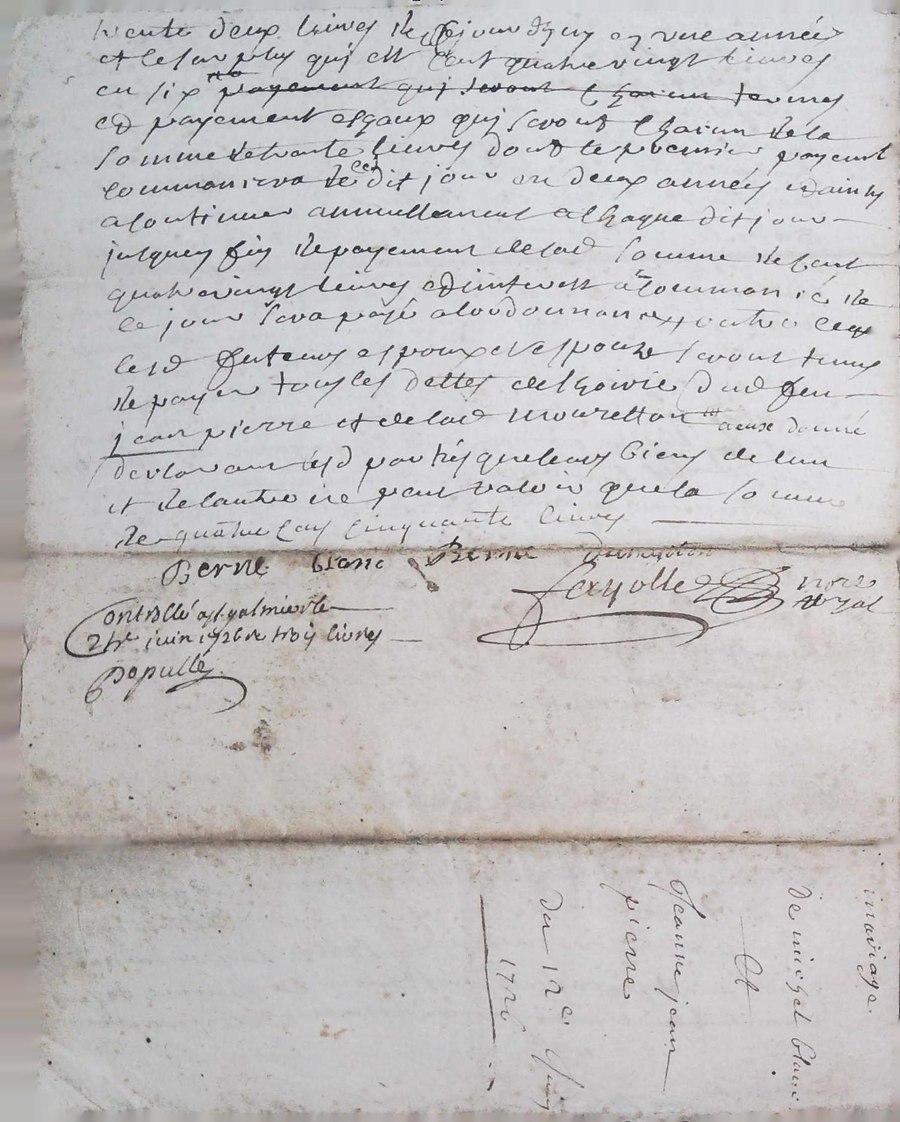 trente deux livres de ce jourdhuy en une année
et le surplus qui est cent quatre vingt livres
en six payement qui seront chacun termes
et payement esgaux qui seront chacun de la
somme de trante livres dont le premier payement
commancera le dit jour en deux années et ainsy
a continuer annuellement a chaque dit jour
jusques fin de payement de lad somme de cent
quatre vingt livres et interest a commancé de
ce jour sera payé a lordonnance outre ce
lesd futeurs espoux et espouze seront tenus
de payer tous les dettes de lhoirie dud feu
jean pierre et de lad mouretton a eux donné
declarant lesd parties que leurs biens de lun
et de lautre ne peut valoir que la somme
de quatre cens cinquante livres
Berne blanc Berne Dumoton
ferjolle nore
Royal
Controllé a St galmier le
24e juin 1726 R trois livres
Populle
mariage
de michel blanc
Et
Jeanne jean
pierre
du 12e juin
1726